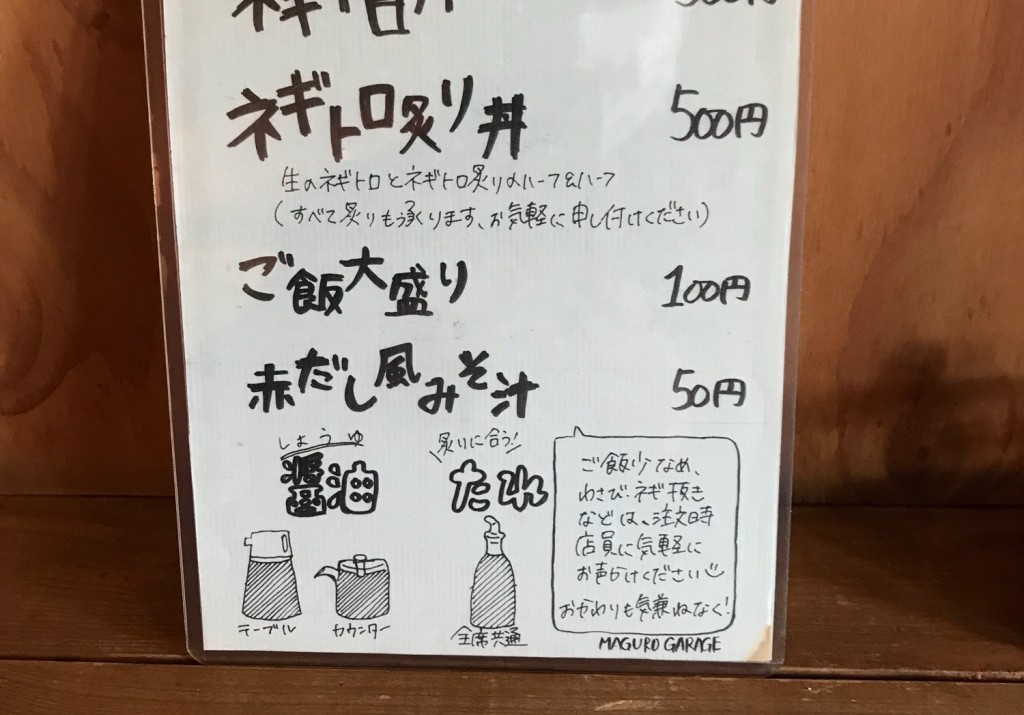 ネギトロ炙り丼 500円
生のネギトロとネギトロ炙りのハーフ&ハーフ
(すべて炙りも承ります、お気軽に申し付けください)
ご飯大盛り 100円
赤だし風みそ汁 50円
しょうゆ
醤油
炙りに合う!
たれ
テーブル
カウンター
全席共通
ご飯少なめ、
わさび・ネギ抜き
などは、注文時
店員に気軽に
お声かけください
おかわりも気兼ねなく!
MAGURO GARAGE